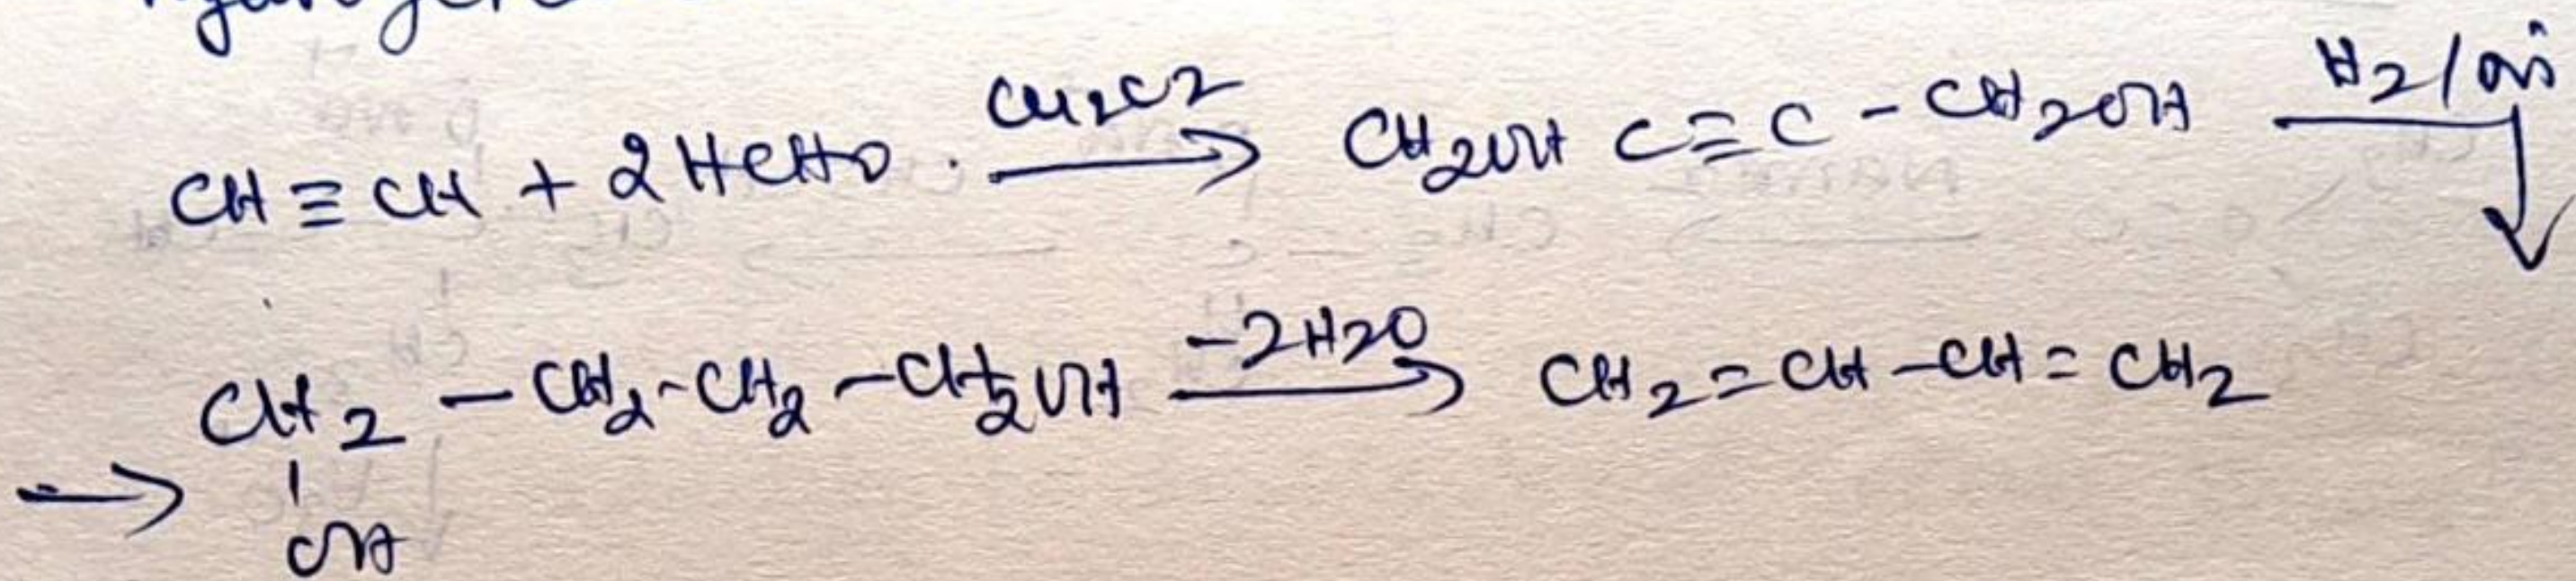 CH ≡ CH + 2 HCHO Cu2C2 → CH2OH C ≡ C - CH2OH H2/Ni ↓
→ CH2 - CH2 - CH2 - CH2OH -2H2O → CH2 = CH - CH = CH2
|
OH